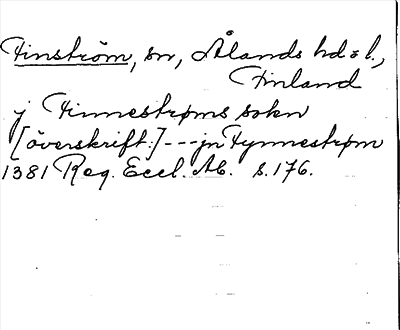 Finström, sn, Ålands hd o l.,
Finland
j Finnestrøms sokn
[överskrift:] --- jn Fynnestrøm
1381 Reg. Eccl. Ab. s. 176.